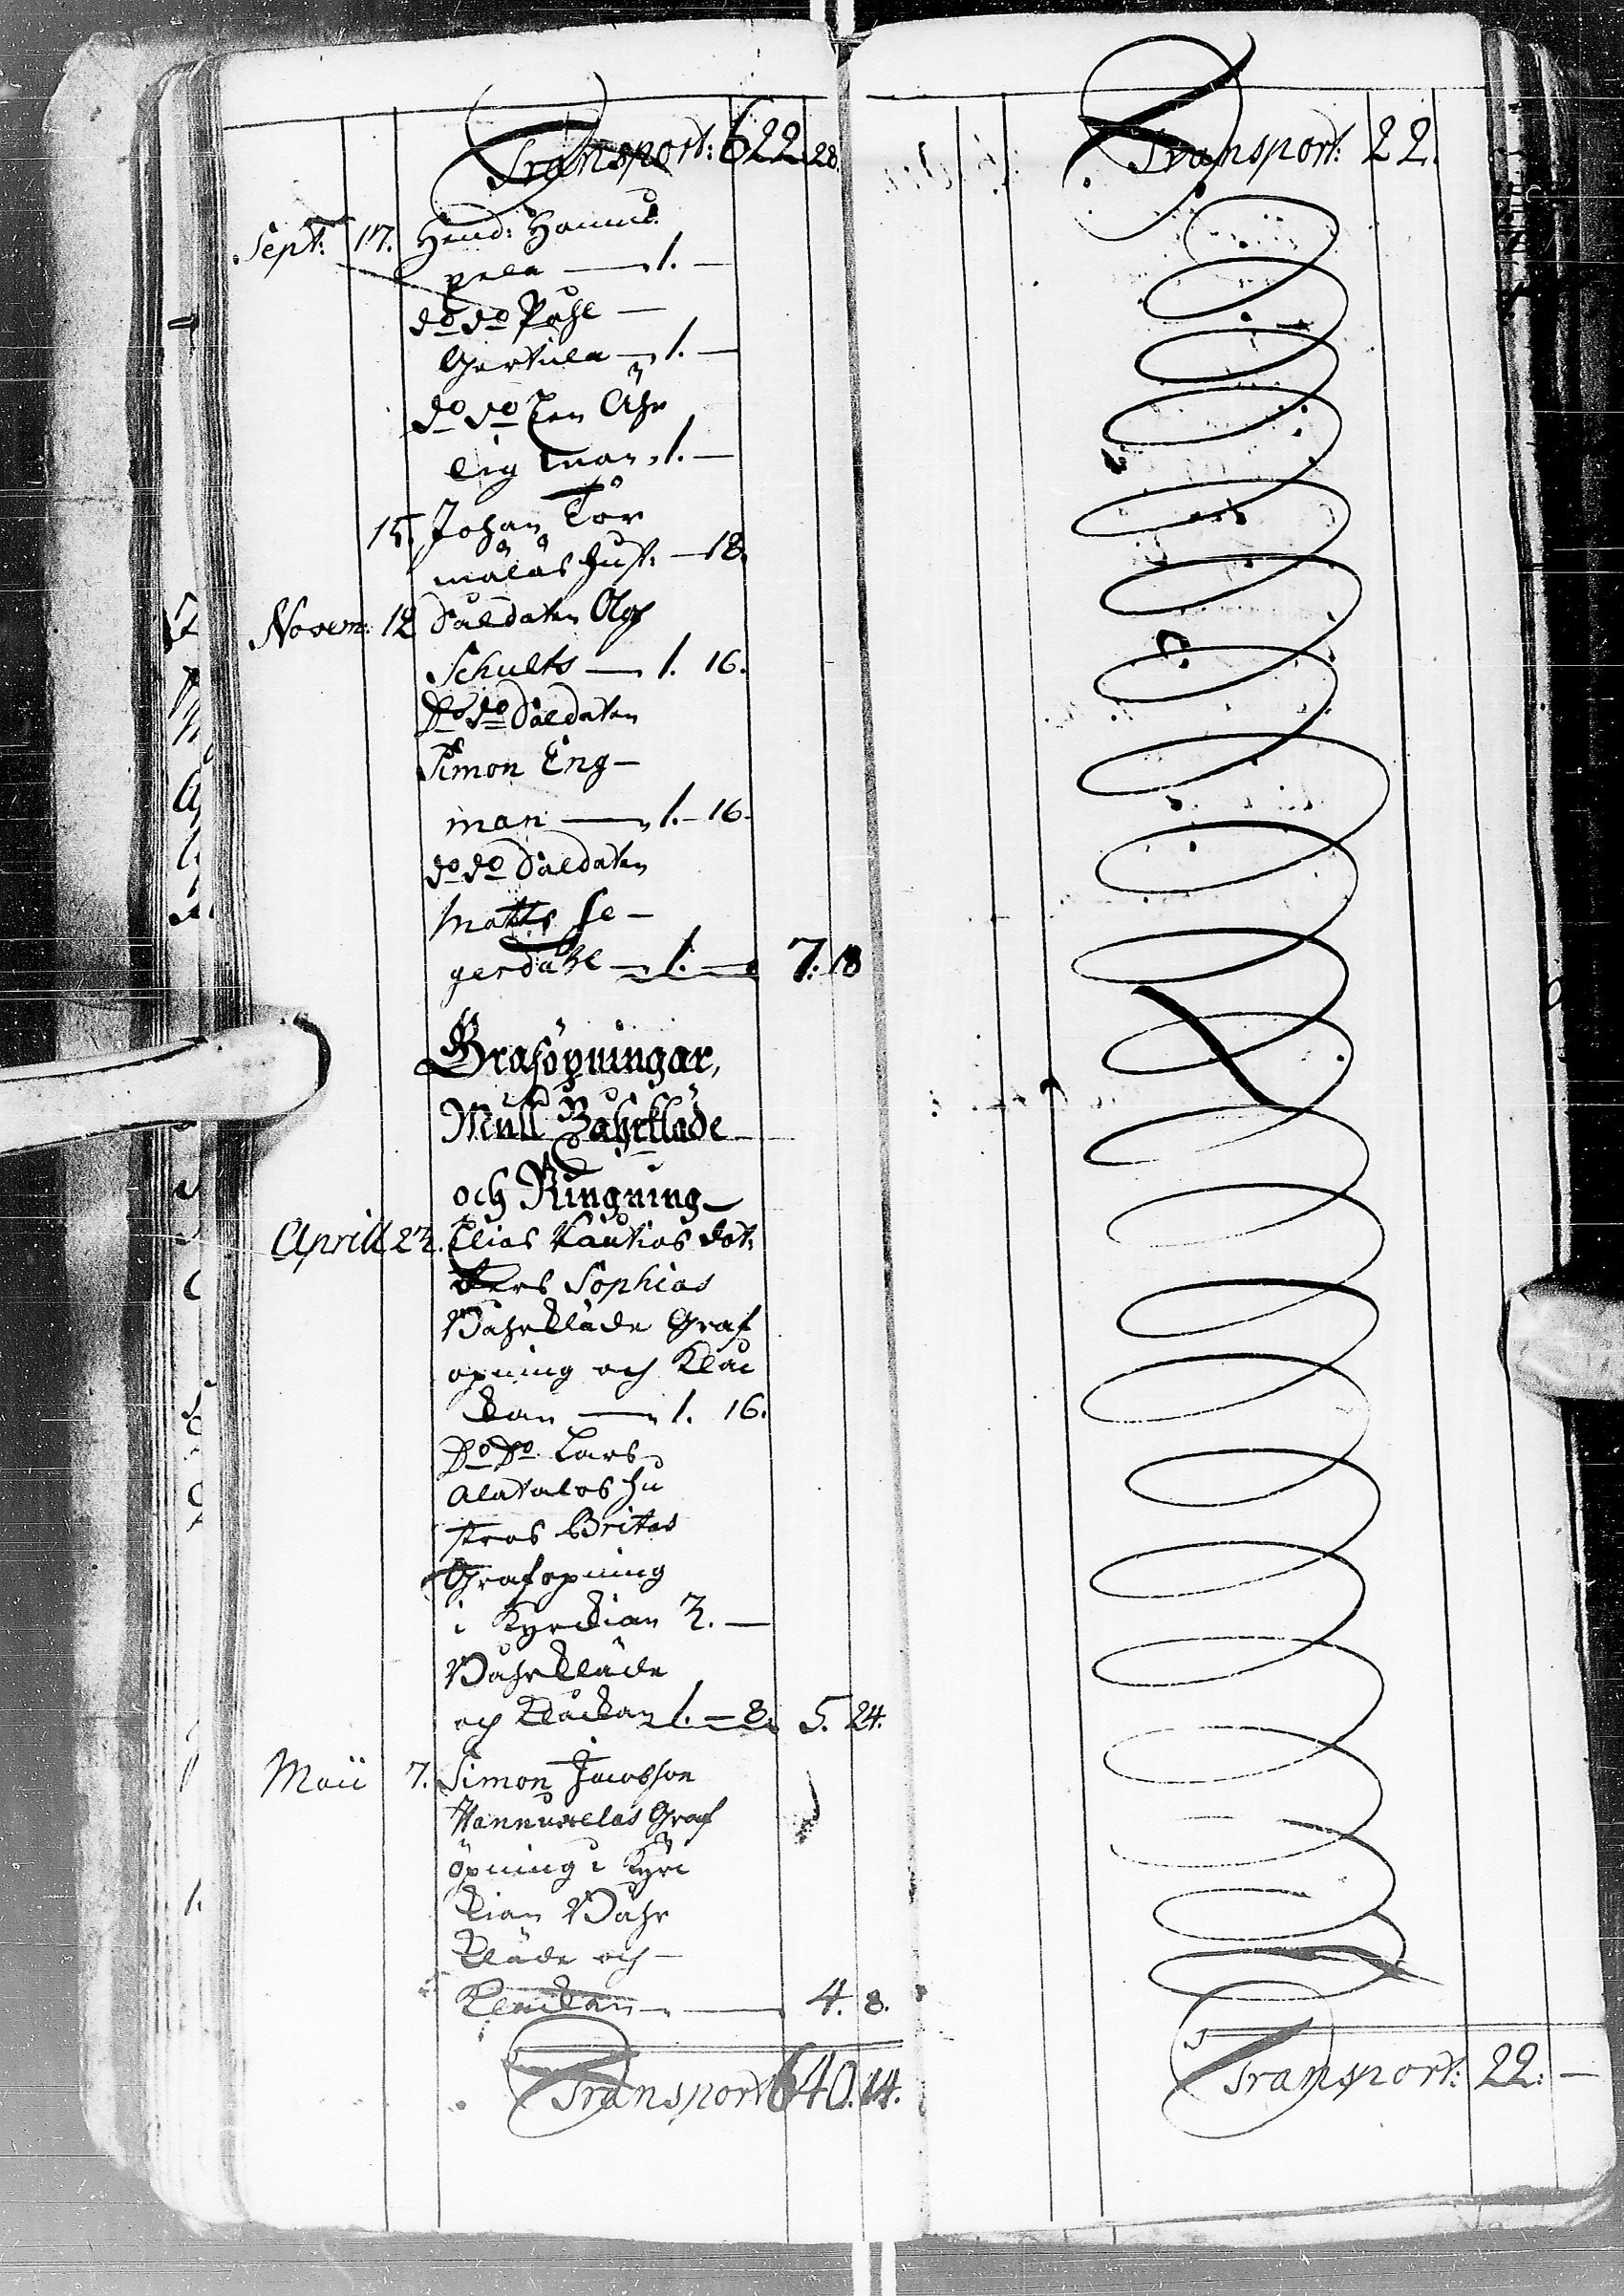 Transport: 622 28.
Sept: 17. Hend: Hannu
pela — 1. —
do do Påhl —
Gertula — 1. —
do do En Ähr
lig man, 1. —
15. Johan Tör
mäläs hust: — 18.
Novem: 12 Saldaten Olof
Schults — 1. 16.
Do do Saldaten
Simon Eng-
man — 1. — 16.
do do Saldaten
Matts Se-
gerdahl — 1. — 7. 18
Graföpningar,
Mull Bahrkläde
och Ringning
Aprill 23. Elias Kautias dot:
ters Sophias
Bahrkläde Graf
opning och Klåc
kan — 1. 16.
Do Do Lars
Alatalos hu
stros Britas
Grafopning
i Kyrckian 3. —
Bahrkläde
och Klåckan 1. — 8. 5. 24.
Maii 7. Simon Jacobsson
Hannukelas Graf
öpning i Kyrc
kian Bahr
kläde och —
Klåckan — 4. 8.
Transport 640. 14.
Transport: 22.
Transport: 22. —